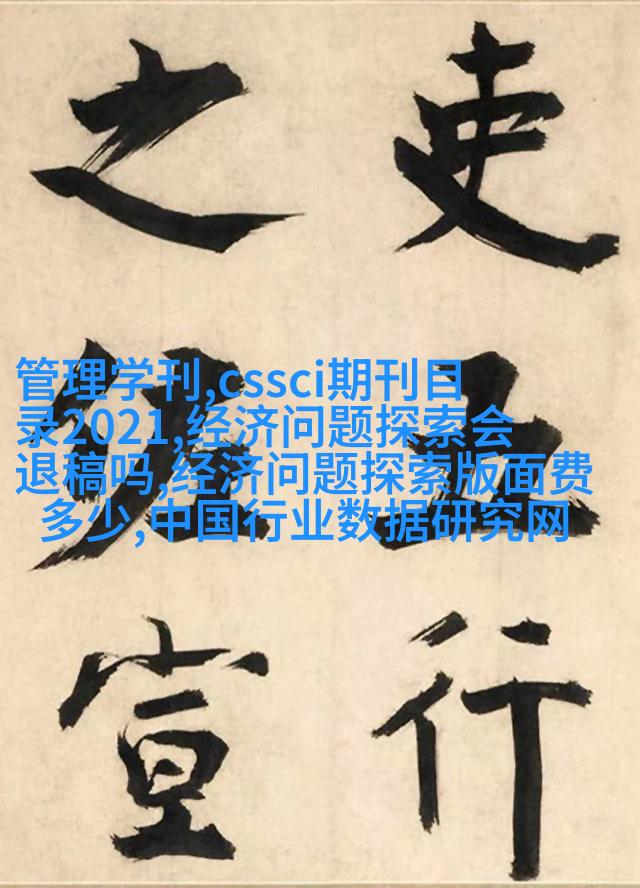 吏五行
之宣
管理学刊,cssci期刊目
录2021,经济问题探索会
退稿吗,经济问题探索版面费
多少,中国行业数据研究网